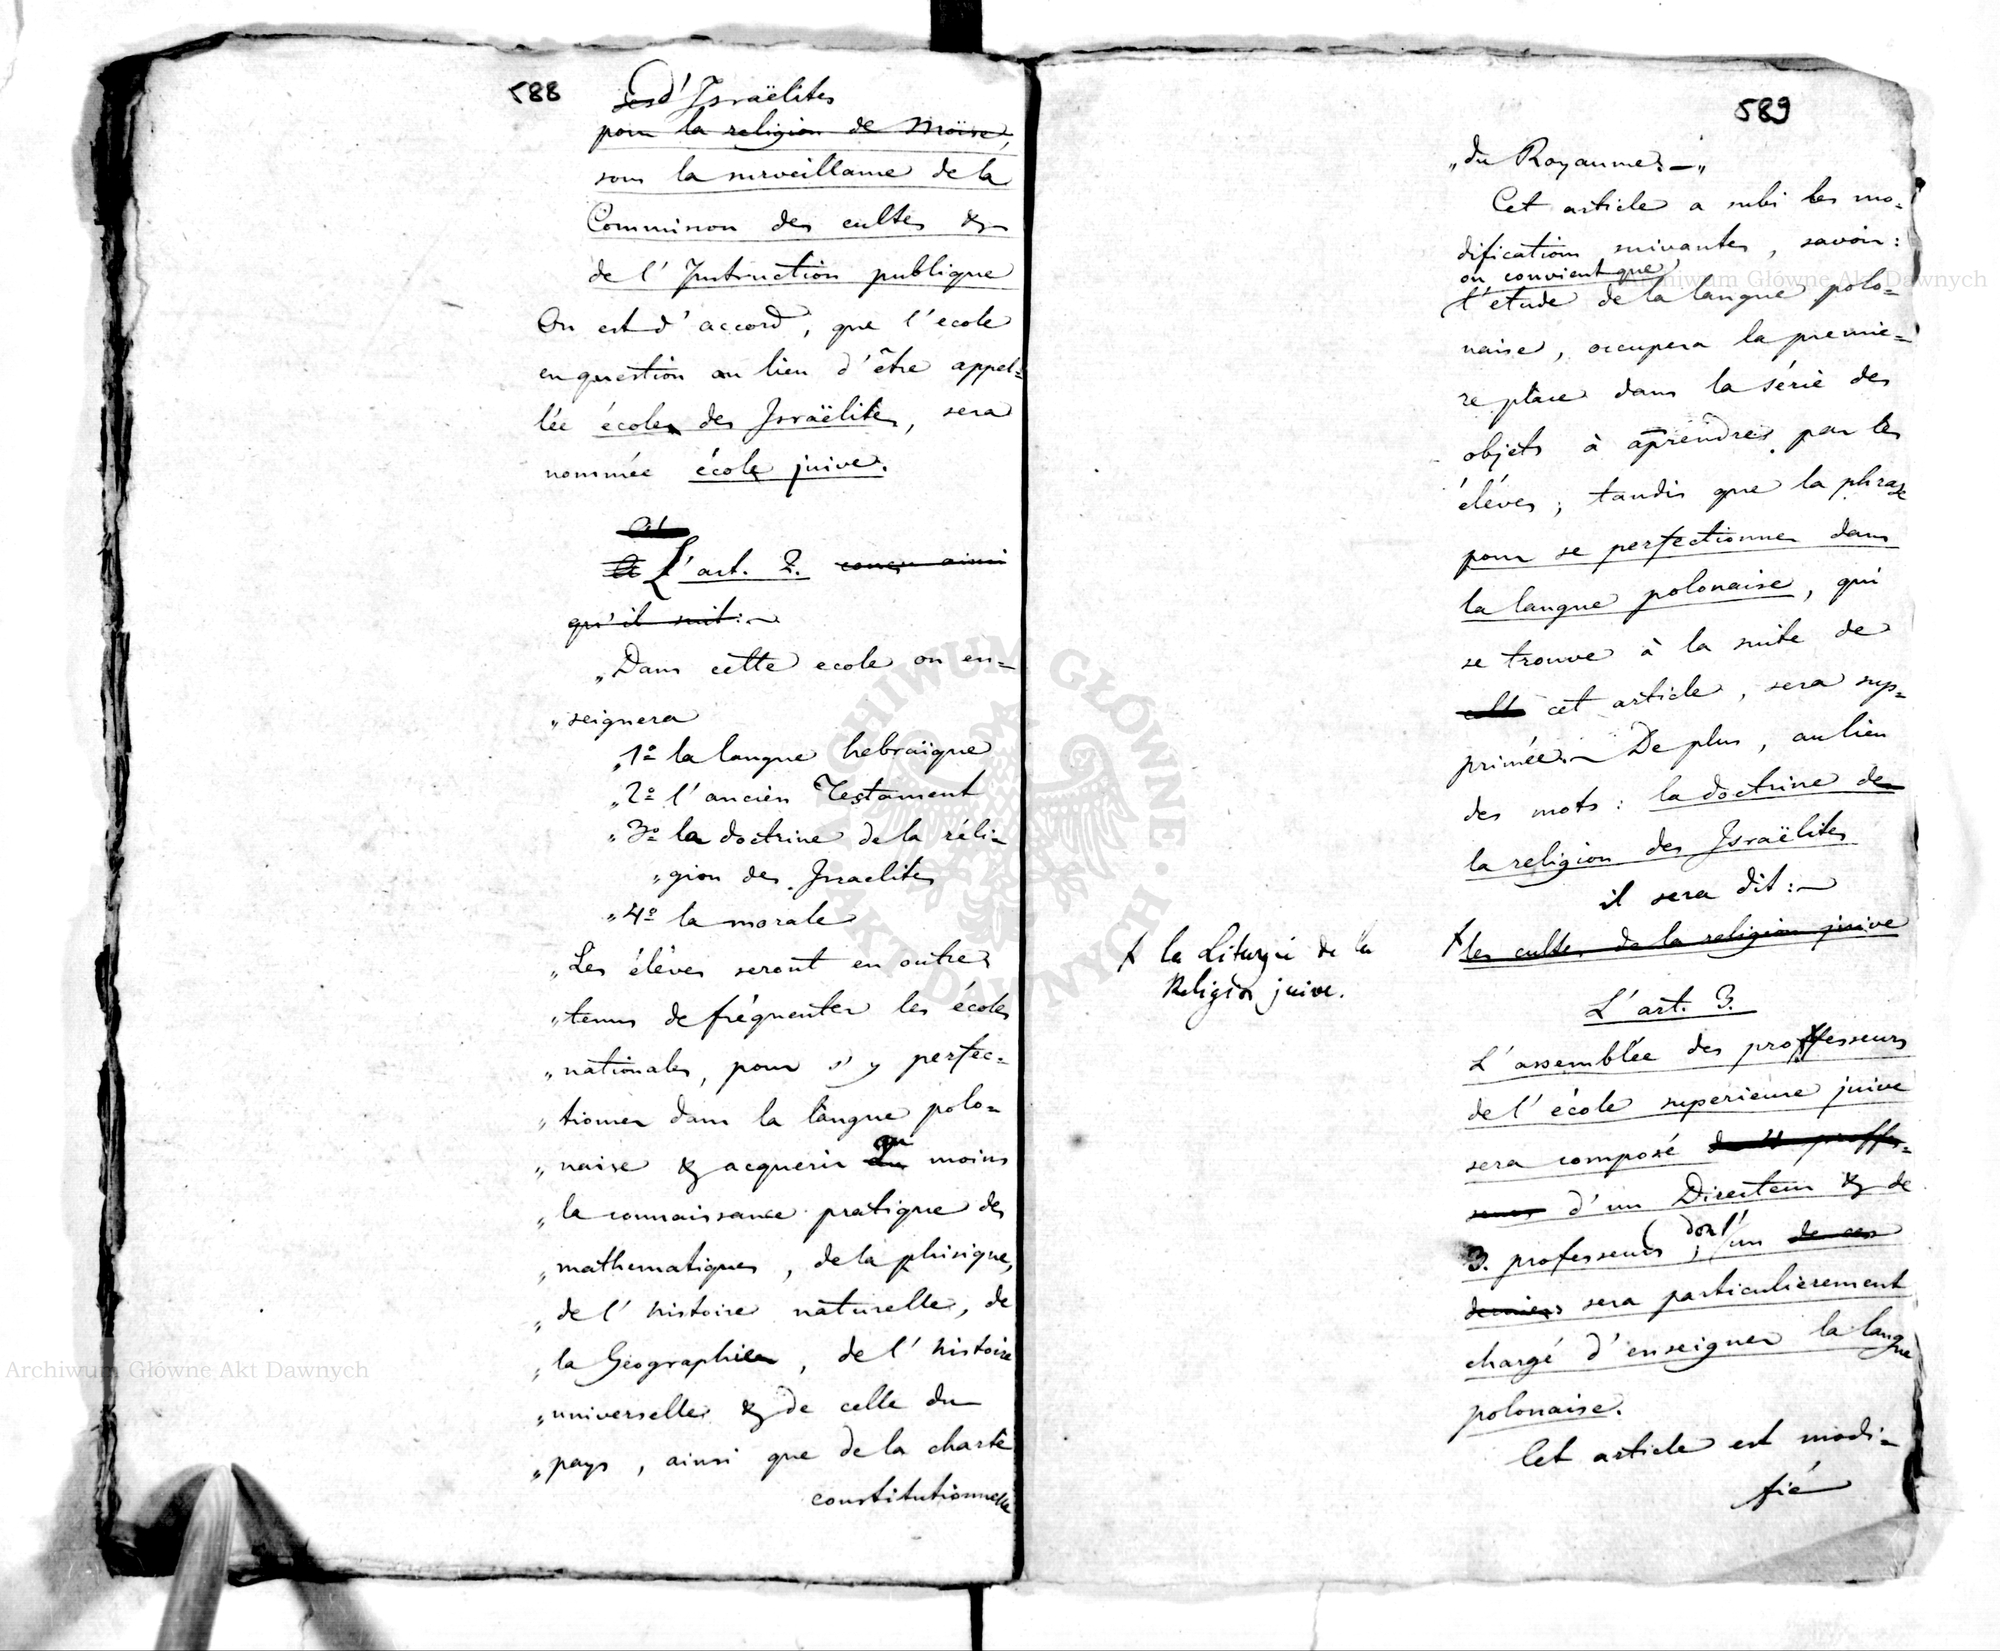 588
d'Israëlites
pour la religion de Moïse,
sous la surveillance de la
Commission des cultes &
de l'Instruction publique
On est d'accord, que l'ecole
en question au lieu d'être appel=
lée écoles des Israëlites, sera
nommée école juive.
L'art. 2. conçu ainsi
qu'il suit:~
„Dans cette ecole on en=
„seignera
„1º la langue hebraïque
„2º l'ancien Testament
„3º la doctrine de la réli=
„gion des Israelites
„4º la morale
„Les élèves seront en outre
„tenus de fréquenter les écoles
„nationales, pour s'y perfec=
„tionner dans la langue polo=
„naise & acquerir au moins
„la connaissance pratique des
„mathematiques, de la phisique,
„de l'histoire naturelle, de
„la Géographie, de l'histoire
„universelle & de celle du
„pays, ainsi que de la charte
constitutionnelle
589
„du Royaume:—„
Cet article a subi les mo=
difications suivantes, savoir:
on convient que
l'etude de la langue polo=
naise, occupera la premie=
re place dans la série des
objets à aprendre par les
élèves; tandis que la phrase
pour se perfectionner dans
la langue polonaise, qui
se trouve à la suite de
cet article, sera sup=
primée.~ De plus, au lieu
des mots: la doctrine de
la religion des Israëlites
il sera dit:~
les cultes de la religion juive
† la Liturgie de la
Religion juive.
L'art. 3.
L'assemblée des professeurs
de l'école superieure juive
sera composé
d'un Directeur & de
3. professeurs, dont l'un de ces
derniers sera particulièrement
chargé d'enseigner la langue
polonaise.
Cet article est modi=
fié
Archiwum Główne Akt Dawnych
Archiwum Główne Akt Dawnych
ARCHIWUM GŁÓWNE AKT DAWNYCH